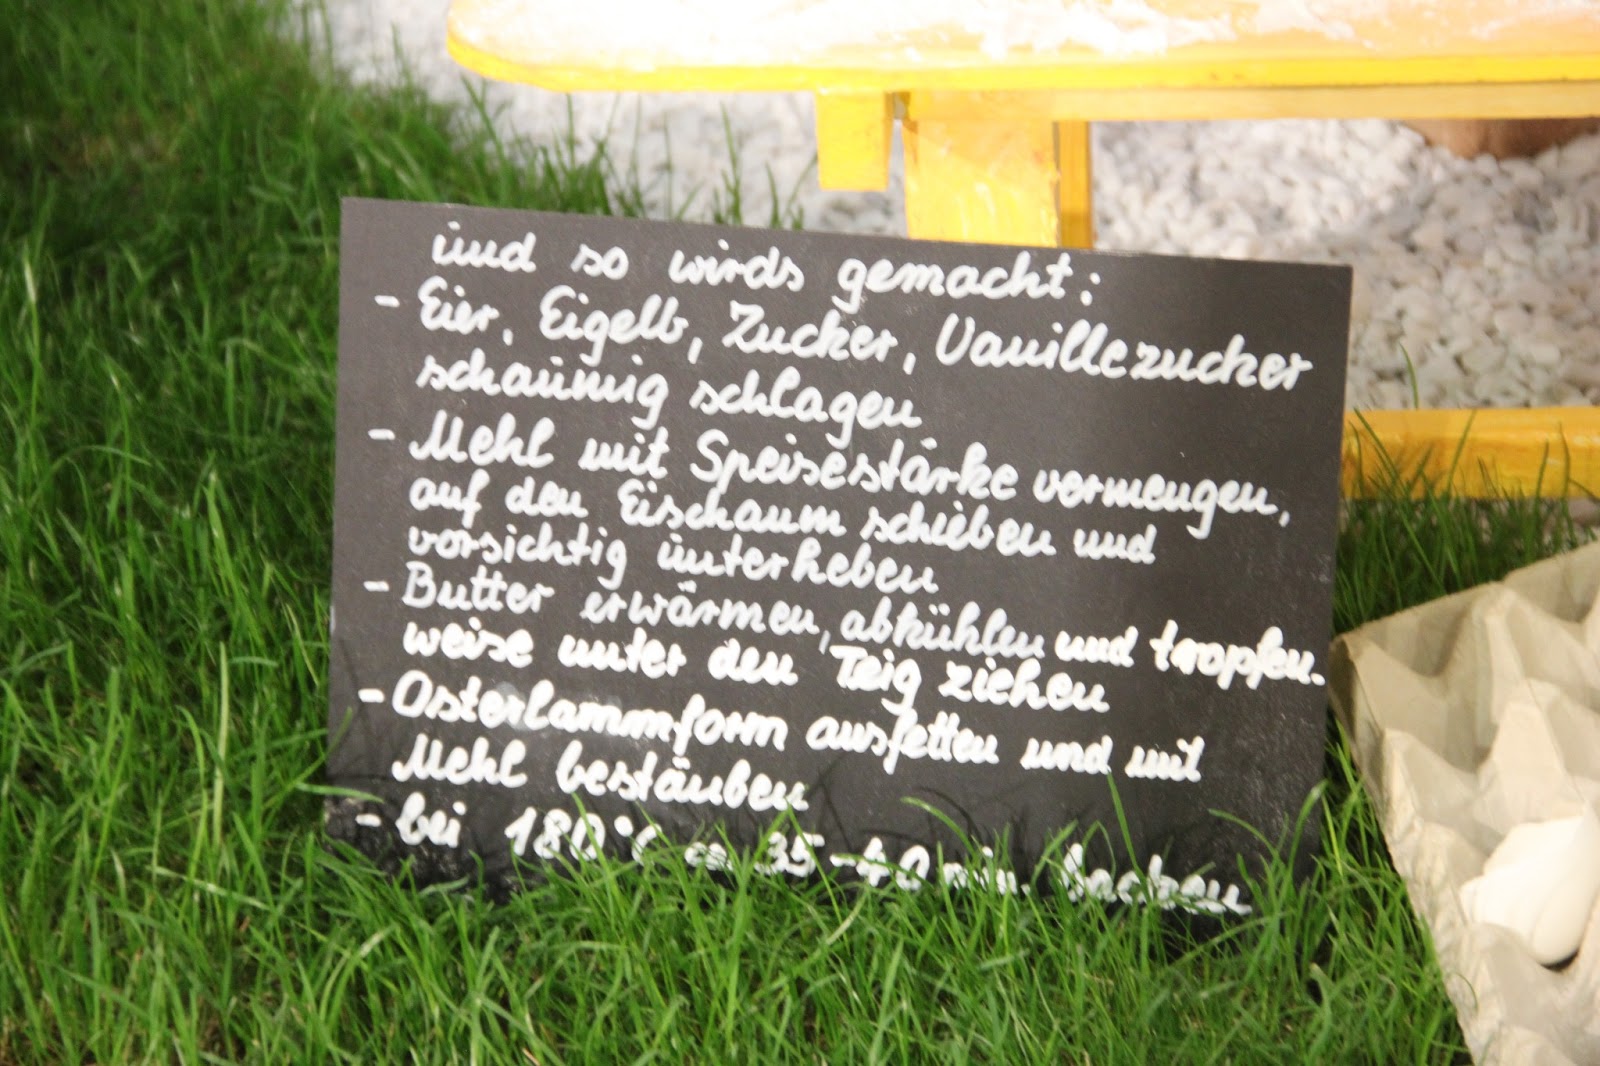 und so wirds gemacht:
- Eier, Eigelb, Zucker, Vanillezucker
schaumig schlagen
- Mehl mit Speisestärke vermengen,
auf den Eischaum schieben und
vorsichtig unterheben
- Butter erwärmen, abkühlen und tropfen-
weise unter den Teig ziehen
- Osterlammform ausfetten und mit
Mehl bestäuben
- bei 180°C ca 35-40 min. backen